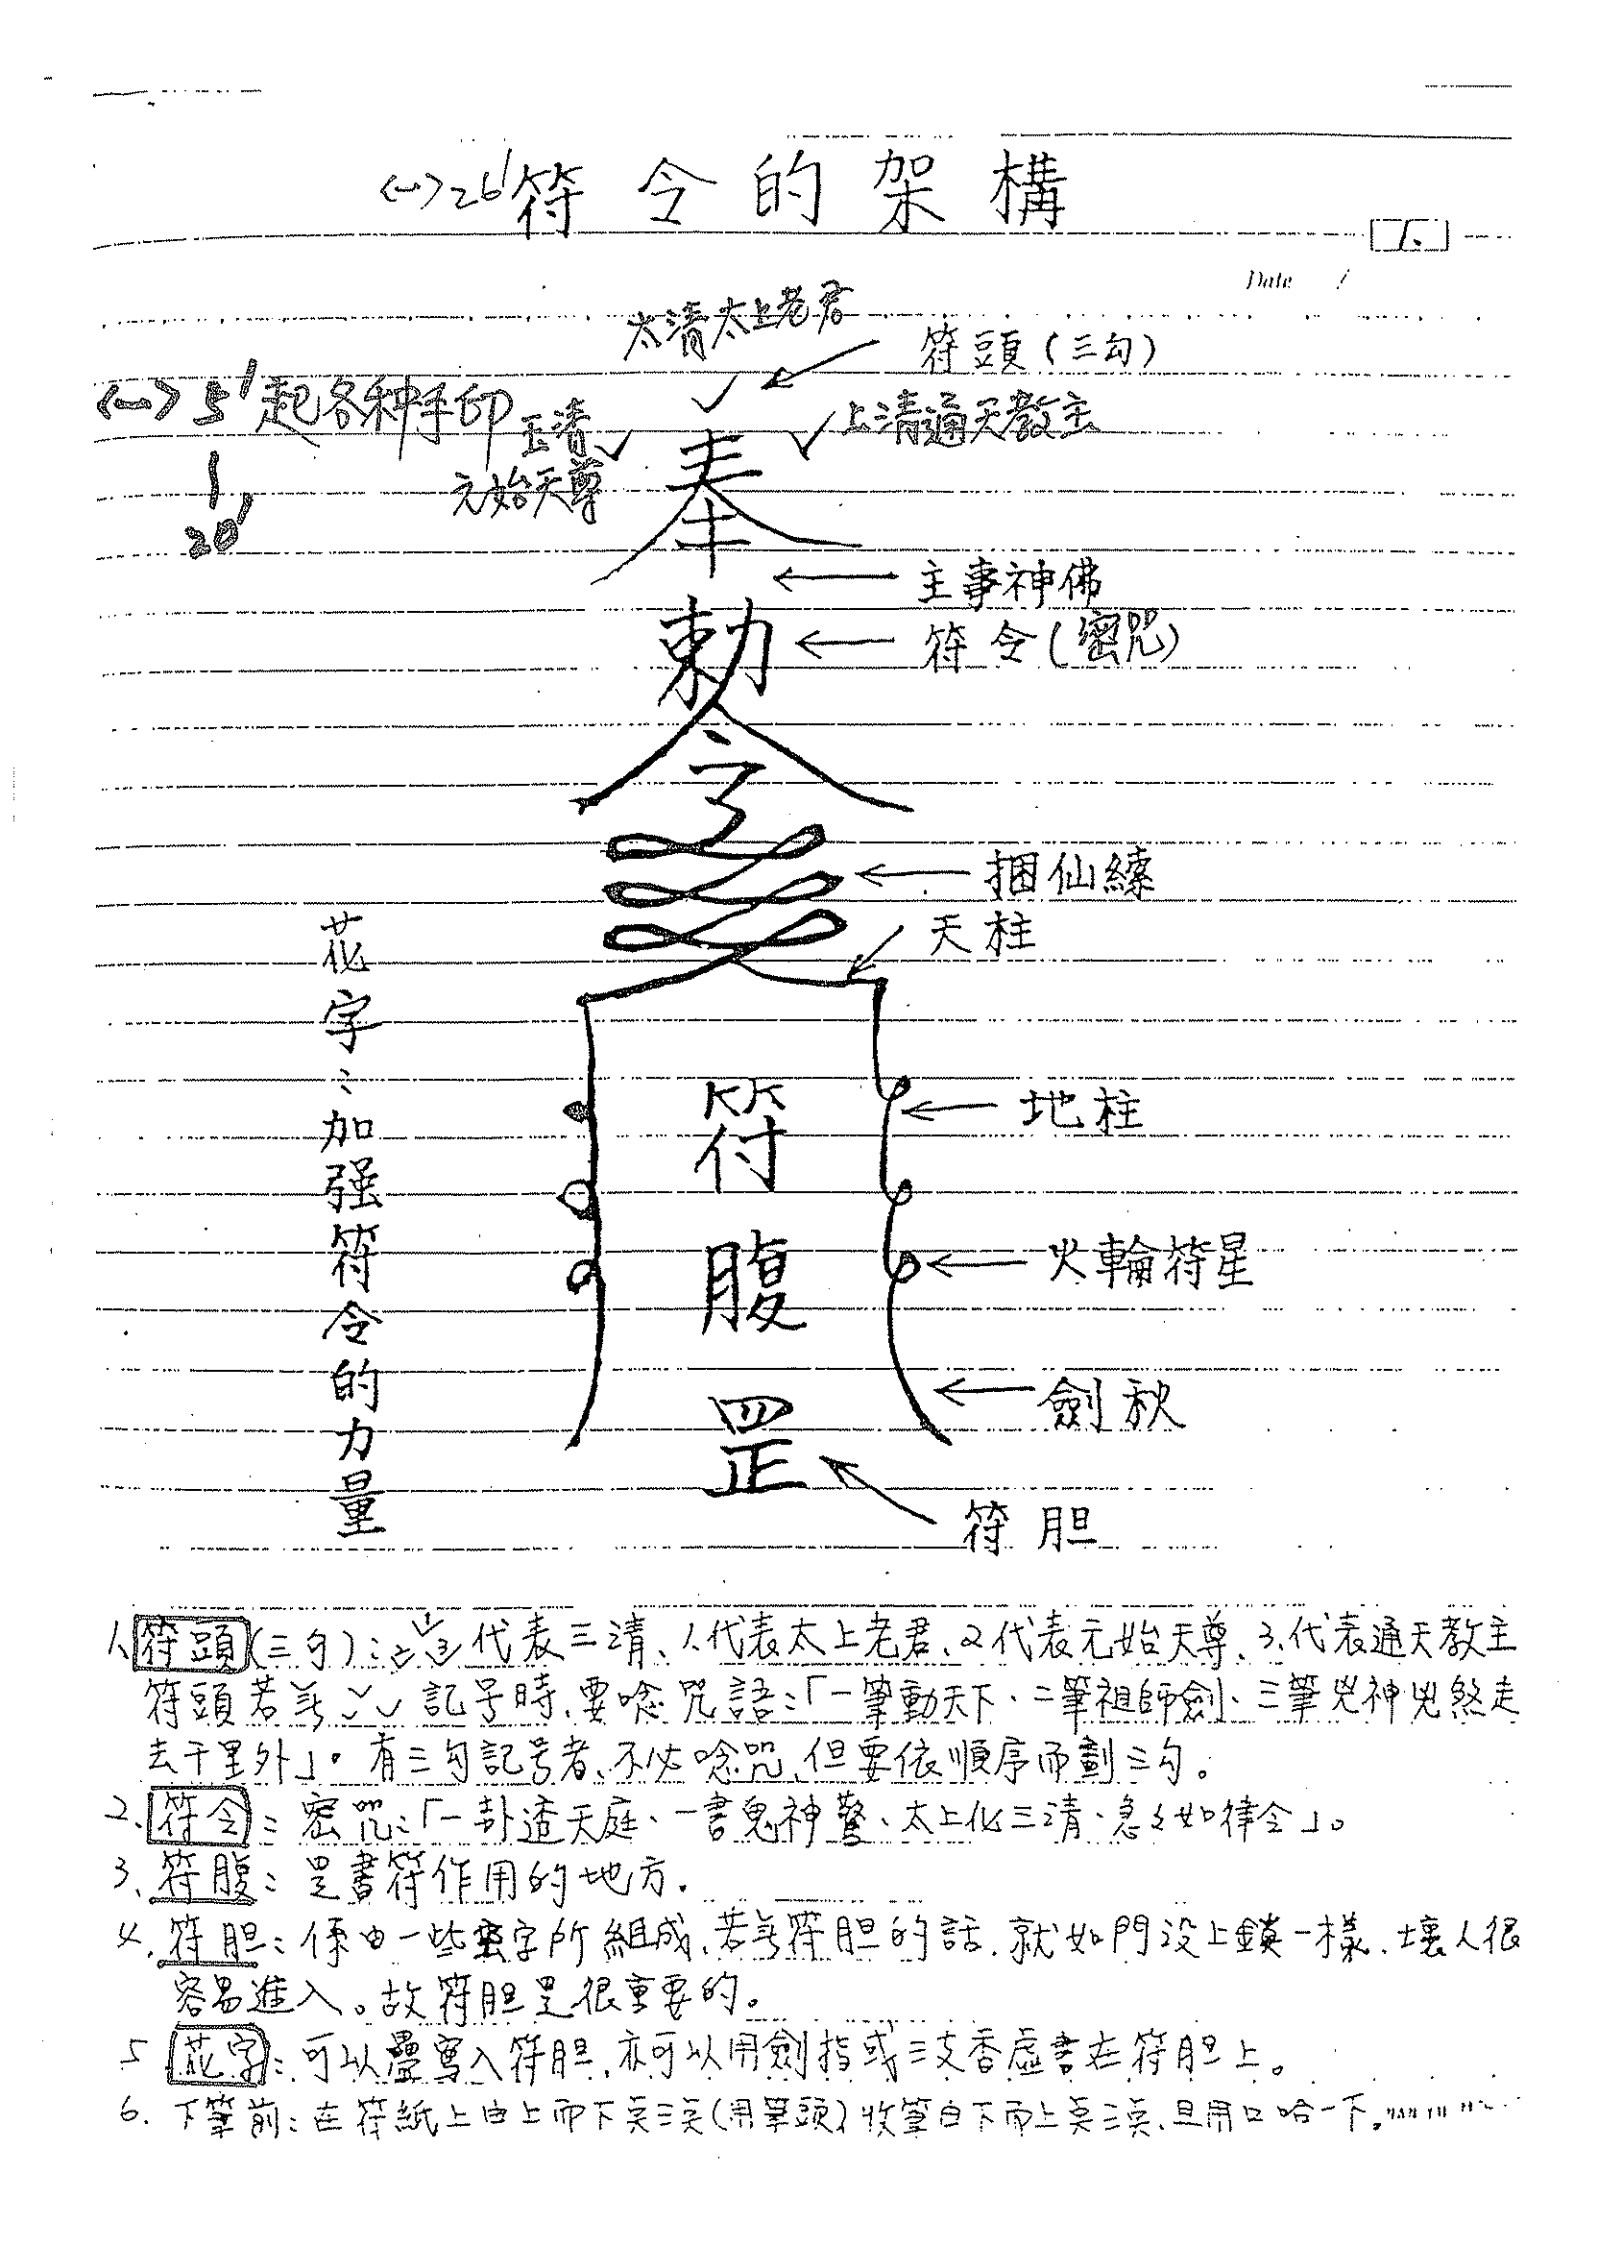 <一>26' 符令的架構
1.
Date /
太清太上老君
符頭(三勾)
<一> 5' 起各种手印
玉清
上清通天教主
元始天尊
奉
20'
主事神佛
勅
符令(密咒)
令
捆仙繩
天柱
花字:加强符令的力量
符腹
地柱
火輪符星
劍秋
罡
符胆
1、符頭(三勾):2 1 3代表三清、1.代表太上老君、2代表元始天尊、3、代表通天教主
符頭若无記号時、要唸咒語:「一筆動天下、二筆祖師劍、三筆兇神兇煞走
去千里外」。有三勾記号者、不必唸咒、但要依順序而劃三勾。
2、符令:密咒:「一卦透天庭、一書鬼神驚、太上化三清、急々如律令」。
3、符腹:是書符作用的地方.
4、符胆:係由一些字所組成、若无符胆的話、就如門没上鎖一樣、壞人很
容易進入。故符胆是很重要的。
5 花字:可以疊寫入符胆、亦可以用劍指或三支香虛書在符胆上。
6. 下筆前:在符紙上由上而下点三点(用筆頭)收筆自下而上点三点、且用口哈一下。